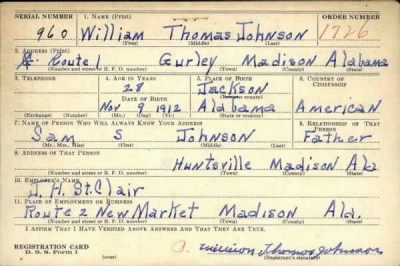 SERIAL NUMBER 1. NAME (Print) ORDER NUMBER
960 William Thomas Johnson 1726
(First) (Middle) (Last)
2. ADDRESS (Print)
Route 1 Gurley Madison Alabama
(Number and street or R. F. D. number) (Town) (County) (State)
3. TELEPHONE 4. AGE IN YEARS 5. PLACE OF BIRTH 6. COUNTRY OF CITIZENSHIP
28 Jackson
DATE OF BIRTH (Town or county)
Nov 9 1912 Alabama American
(Exchange) (Number) (Mo.) (Day) (Yr.) (State or country)
7. NAME OF PERSON WHO WILL ALWAYS KNOW YOUR ADDRESS 8. RELATIONSHIP OF THAT PERSON
Sam S Johnson Father
(Mr., Mrs., Miss) (First) (Middle) (Last)
9. ADDRESS OF THAT PERSON
Huntsville Madison Ala
(Number and street or R. F. D. number) (Town) (County) (State)
10. EMPLOYER'S NAME
J. H. St. Clair
11. PLACE OF EMPLOYMENT OR BUSINESS
Route 2 New Market Madison Ala.
(Number and street or R. F. D. number) (Town) (County) (State)
I AFFIRM THAT I HAVE VERIFIED ABOVE ANSWERS AND THAT THEY ARE TRUE.
REGISTRATION CARD
D. S. S. Form 1 William Thomas Johnson
(over) (Registrant's signature)